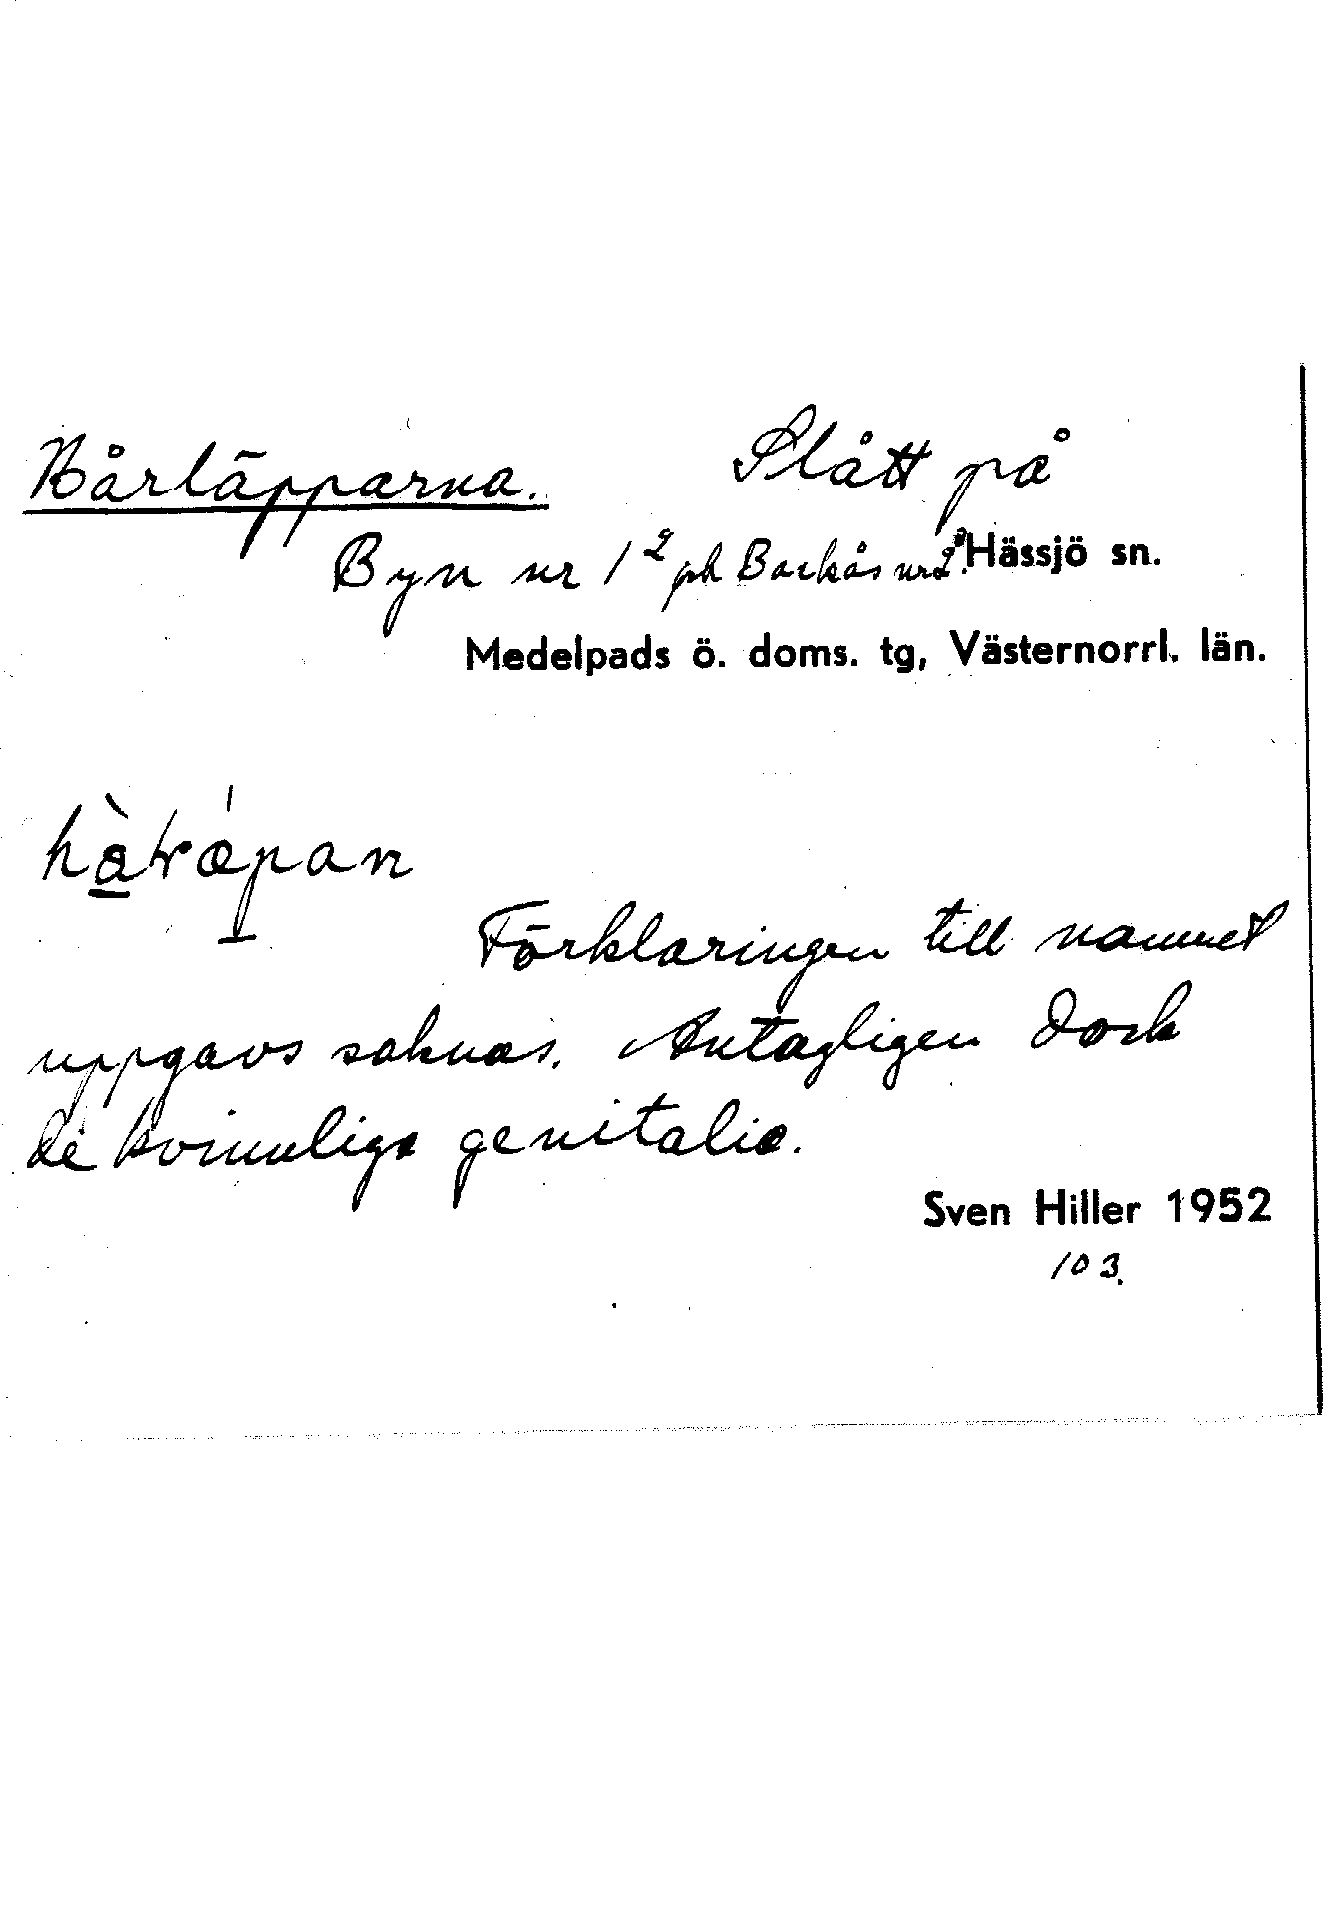 Hårläpparna. Slått på
Byn nr 1² på Backås nr 2 Hässjö sn.
Medelpads ö. doms. tg, Västernorrl. län.
Förklaringen till namnet
uppgavs saknas. Antagligen dock
de kvinnliga genitalia.
Sven Hiller 1952
103.